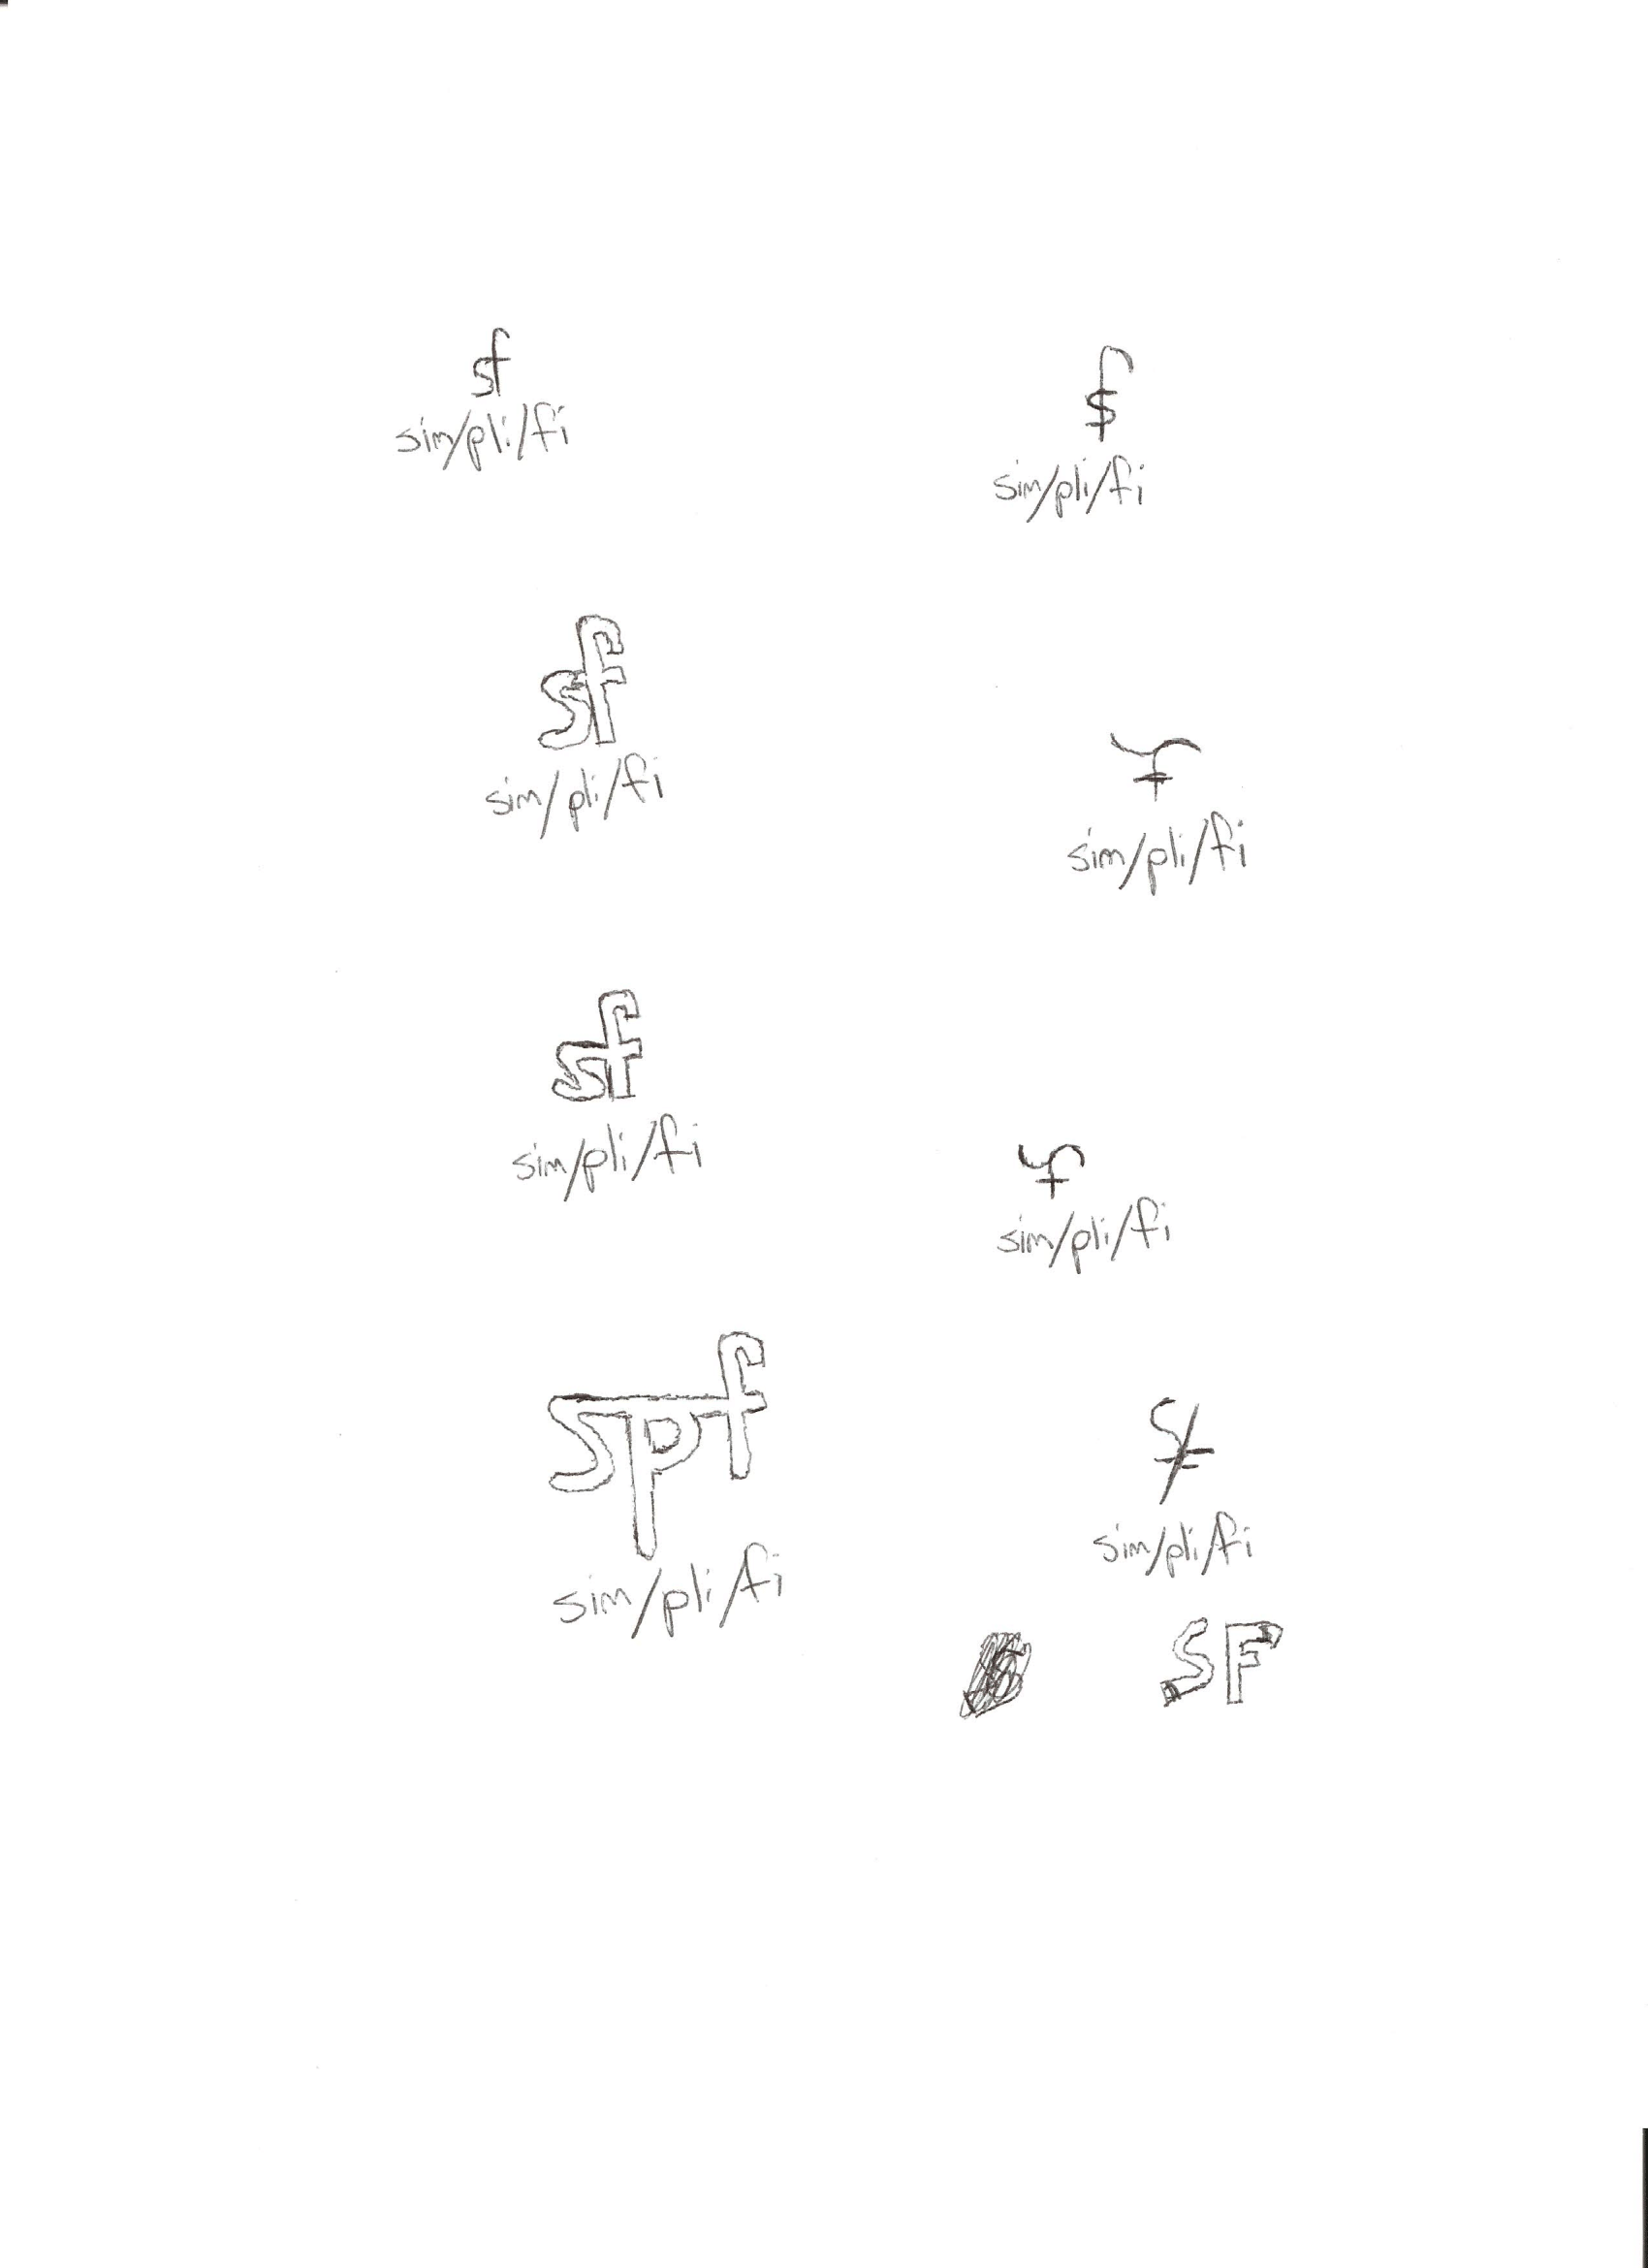 sf
sim/pli/fi
sim/pli/fi
sf
sim/pli/fi
sim/pli/fi
sf
sim/pli/fi
sim/pli/fi
spf
sim/pli/fi
sim/pli/fi
SF